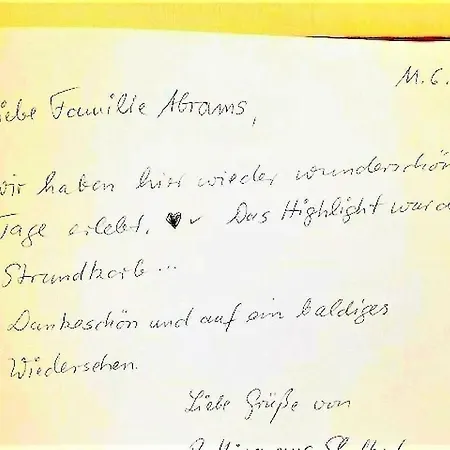 11.6.
iebe Familie Abrams,
wir haben hier wieder wunderschön
Tage erlebt. ♥ Das Highlight war d
Strandkorb...
Dankeschön und auf ein baldiges
Wiedersehen.
Liebe Grüße von